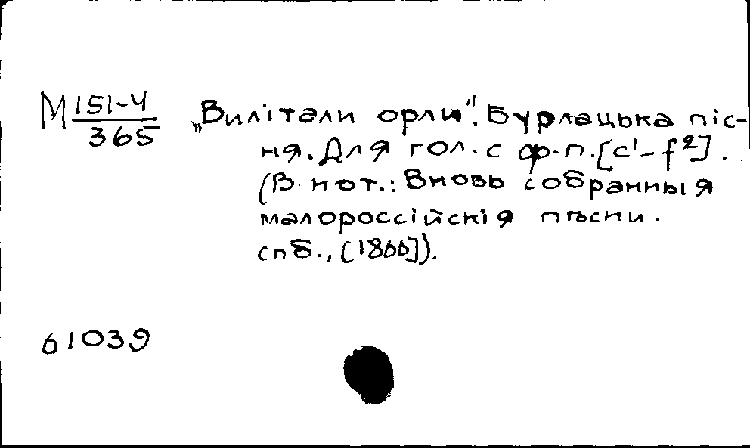 М 151-4
365
„Вилітали орли". Бурлацька піс-
ня. Для гол. с ф.п. [c¹-f²].
(В нот.: Вновь собранныя
малороссійскія пѣсни.
спб., [1866]).
61039